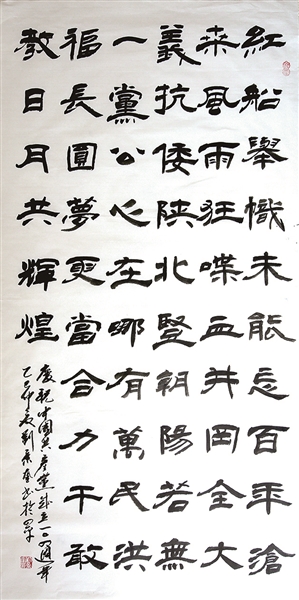 紅船舉幟未能忘百年滄
来風雨狂喋血井岡全大
義抗倭陝北豎朝陽若無
一黨公心在哪有萬民洪
福長圓夢更當合力干敢
教日月共輝煌
慶祝中國共產黨成立一〇四週年
乙巳仲夏劉書於四平